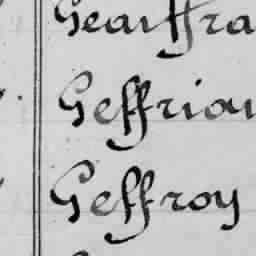 Geauffra
Geffriau
Geffroy